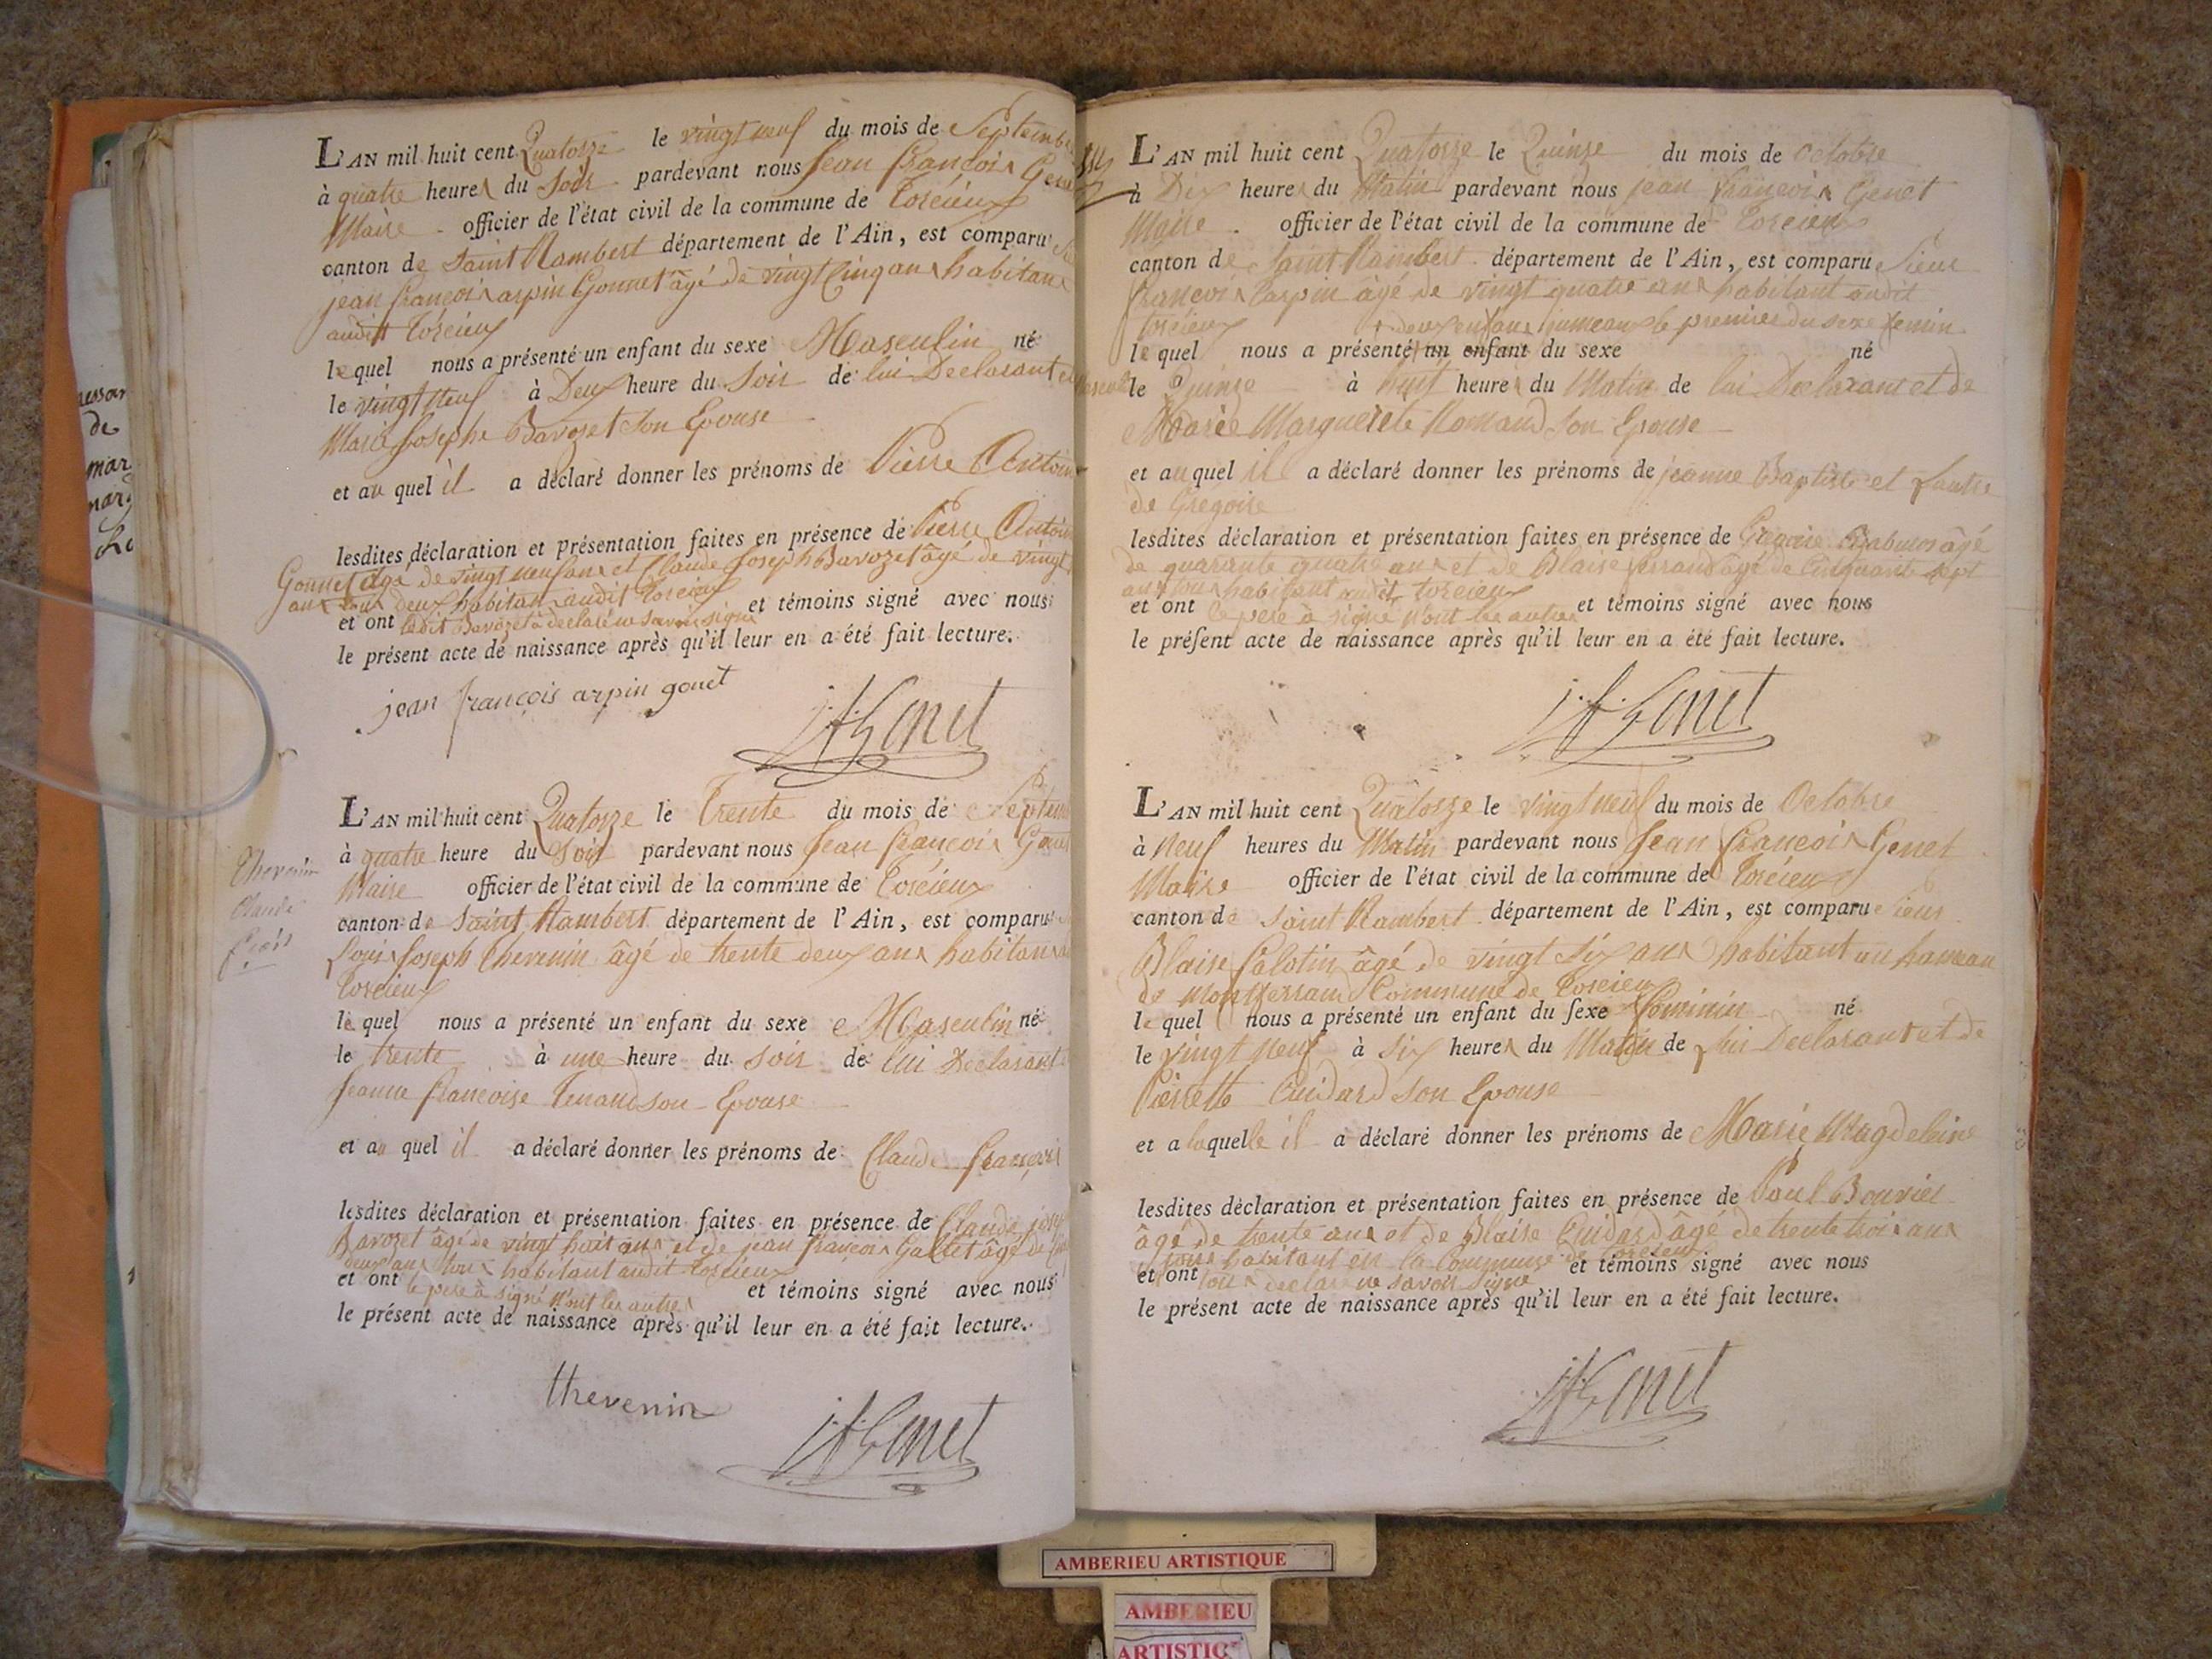 L'AN mil huit cent Quatorze le vingt neuf du mois de Septemb
à quatre heures du Soir pardevant nous Jean françois Gene
Maire officier de l'état civil de la commune de Torcieux
canton de Saint Rambert département de l'Ain, est comparu
jean françois arpin Gonnet âgé de vingt cinq ans habitant
audit Torcieux
lequel nous a présenté un enfant du sexe Masculin né
le vingt neuf à Deux heure du Soir de lui Declarant
Marie Josephe Bavozet son Epouse
et au quel il a déclaré donner les prénoms de Pierre Antoin
lesdites déclaration et présentation faites en présence de Pierre Antoin
Gonnet âgé de vingt neuf ans et Claude Joseph Bavozet âgé de vingt
ans tous deux habitans audit Torcieux
et ont ledit Bavozet à declaré ne savoir signe et témoins signé avec nous
le présent acte de naissance après qu'il leur en a été fait lecture.
jean françois arpin gonet
j f Genet
Thevenin
Claude
fçois
L'AN mil huit cent Quatorze le Trente du mois de Septem
à quatre heure du Soir pardevant nous Jean françois Genet
Maire officier de l'état civil de la commune de Torcieux
canton de Saint Rambert département de l'Ain, est comparu
Louis Joseph Thevenin âgé de trente deux ans habitans
Torcieux
le quel nous a présenté un enfant du sexe Masculin né
le trente à une heure du soir de lui Declarant
Jeanne françoise Tenand son Epouse
et au quel il a déclaré donner les prénoms de Claude françois
lesdites déclaration et présentation faites en présence de Claude jose
Bavozet âgé de vingt huit ans et de jean françois âgé de
deux ans tous habitant audit torcieux
et ont le pere à signé n'ont les autres et témoins signé avec nous
le présent acte de naissance après qu'il leur en a été fait lecture.
thevenin
j f Genet
L'AN mil huit cent Quatorze le Quinze du mois de Octobre
à Dix heures du Matin pardevant nous jean françois Genet
Maire officier de l'état civil de la commune de Torcieux
canton de Saint Rambert département de l'Ain, est comparu Sieur
françois âgé de vingt quatre ans habitant audit
torcieux + deux enfans jumeaux le premier du sexe femin
le quel nous a présenté un enfant du sexe né
le Quinze à huit heures du Matin de lui Declarant et de
Marie Marguerete Romand son Epouse
et au quel il a déclaré donner les prénoms de jeanne Baptiste et Lautre
de Gregoire
lesdites déclaration et présentation faites en présence de Gregoire âgé
de quarante quatre ans et de Blaise ferrand âgé de Cinquante sept
ans tous habitant audit torcieux
et ont le pere à signé n'ont les autres et témoins signé avec nous
le présent acte de naissance après qu'il leur en a été fait lecture.
j f Genet
L'AN mil huit cent Quatorze le vingt neuf du mois de Octobre
à Neuf heures du Matin pardevant nous Jean françois Genet
Maire officier de l'état civil de la commune de Torcieux
canton de Saint Rambert département de l'Ain, est comparu Sieur
Blaise âgé de vingt six ans habitant au hameau
de montferrand Commune de Torcieux
le quel nous a présenté un enfant du sexe feminin né
le vingt neuf à six heures du Matin de lui Declarant et de
Pierrette Cuidard son Epouse
et a laquelle il a déclaré donner les prénoms de Marie Magdeleine
lesdites déclaration et présentation faites en présence de Paul Bouvier
âgé de trente ans et de Blaise Cuidard âgé de trente trois ans
tous habitant en la Commune de Torcieux
et ont tous declaré ne savoir signe et témoins signé avec nous
le présent acte de naissance après qu'il leur en a été fait lecture.
j f Genet
AMBERIEU ARTISTIQUE
AMBERIEU
ARTISTIQ